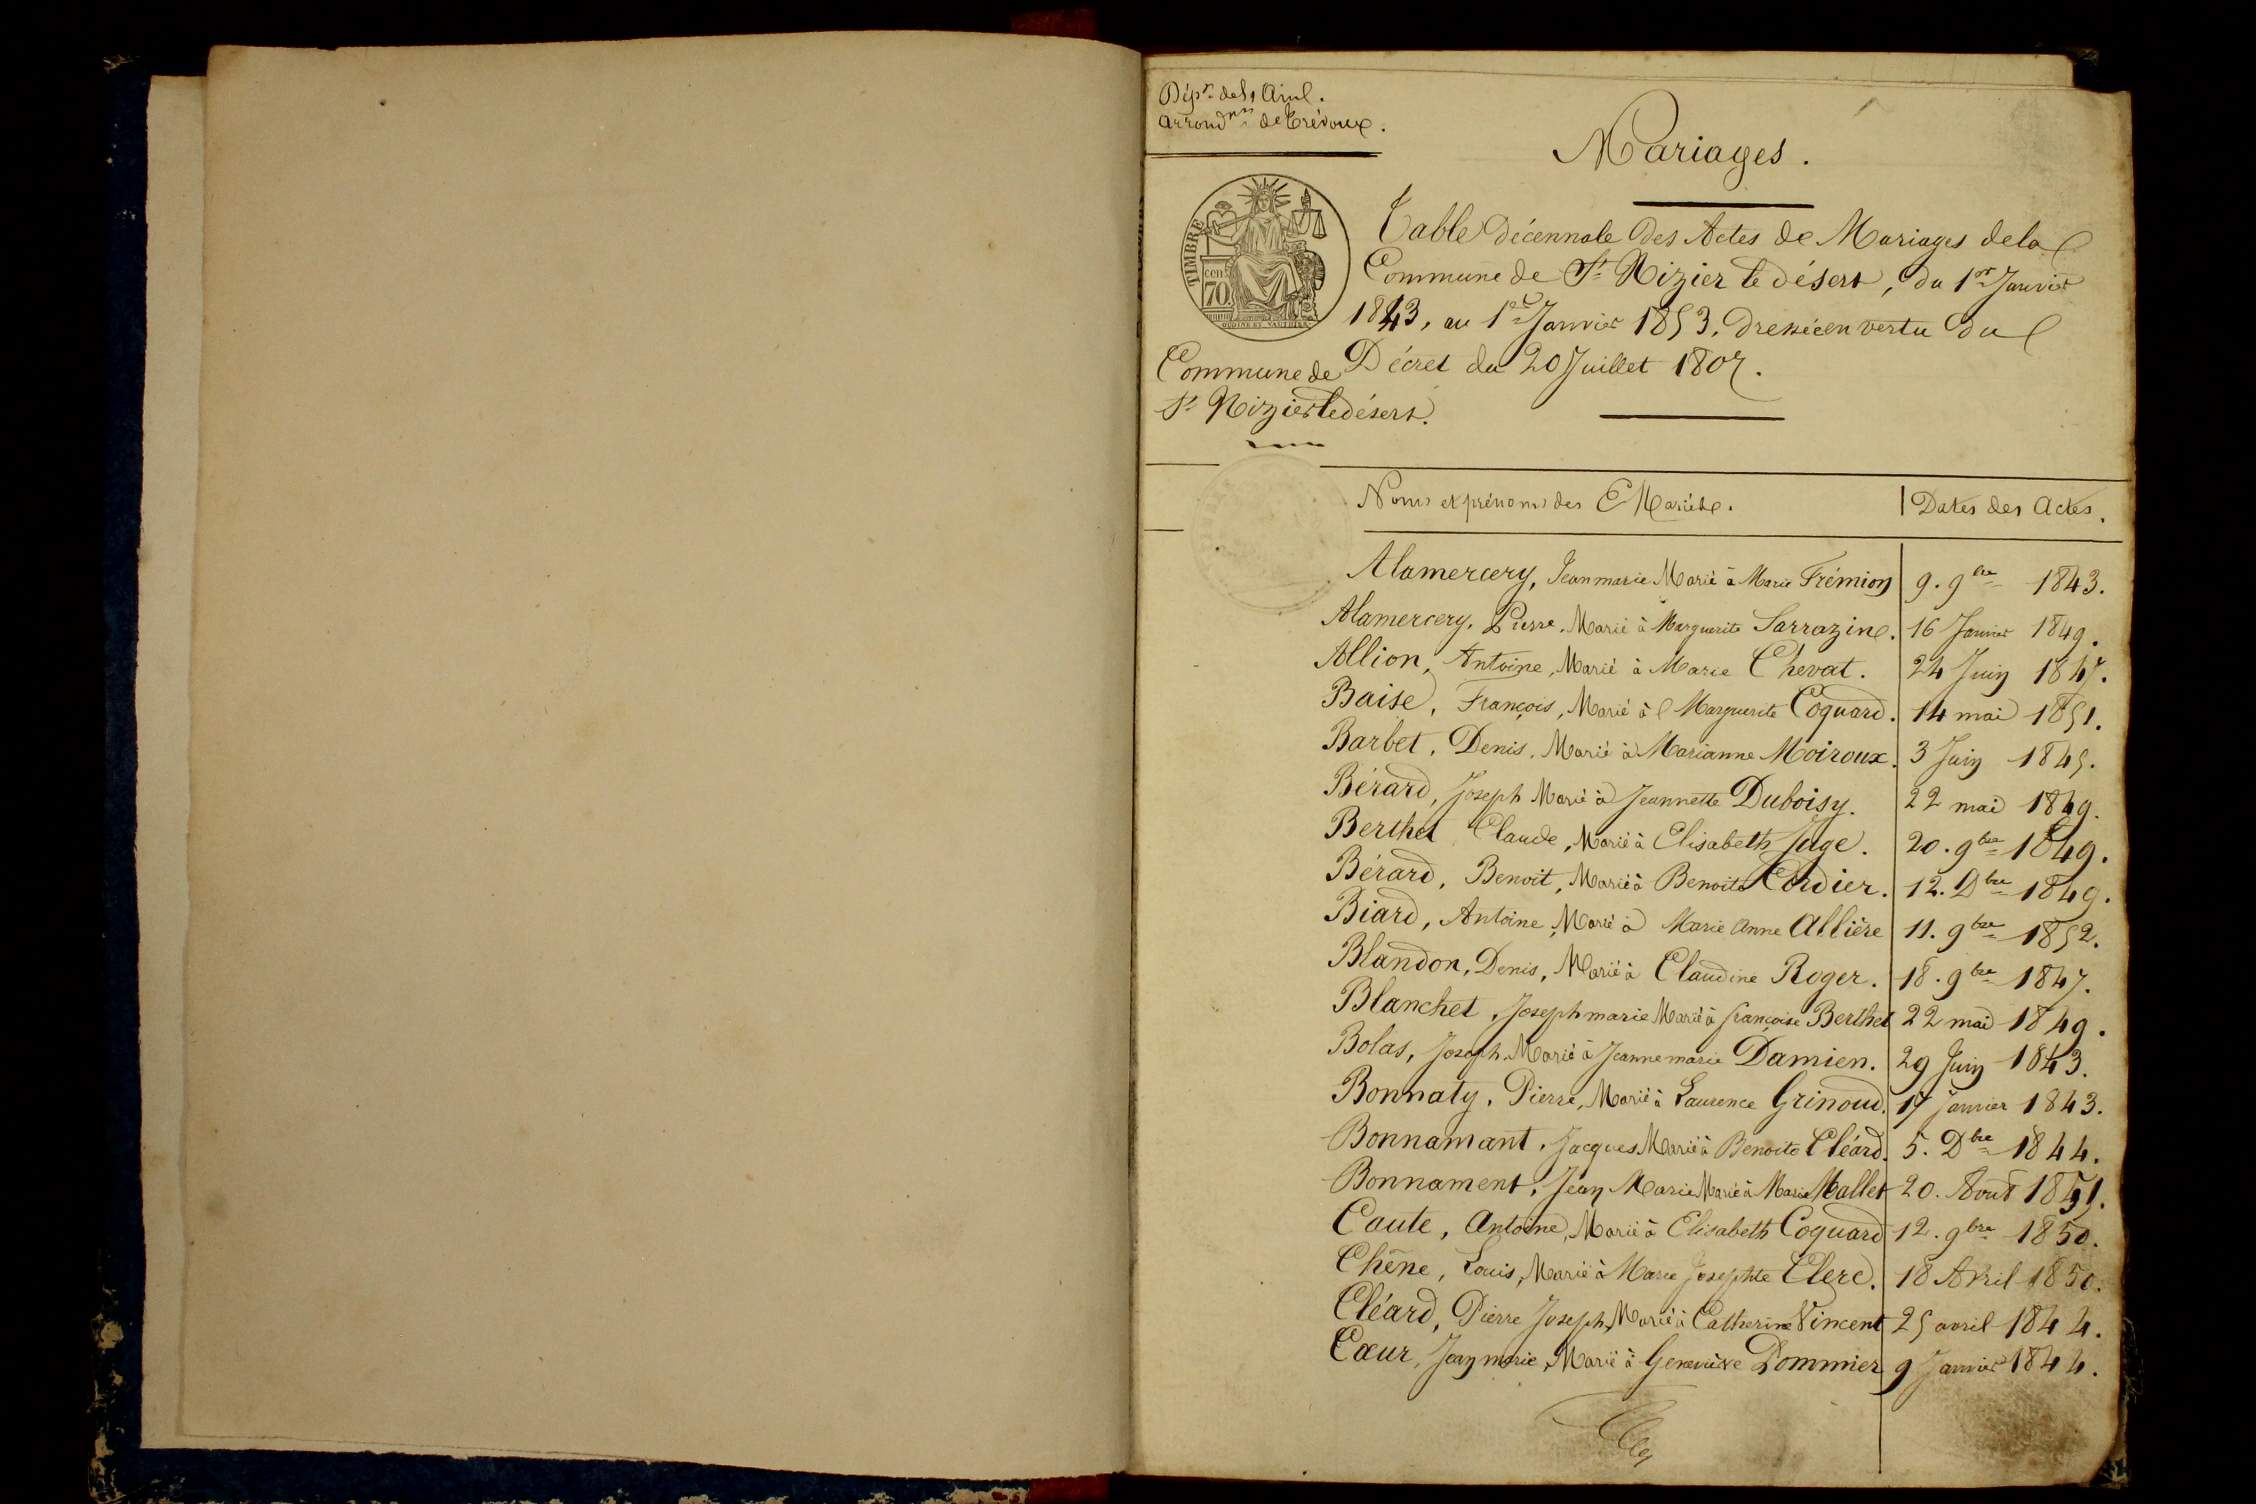 Dépt de l'Ain.
Arrondnt de Trévoux.
Mariages.
TIMBRE
cen.
70
OUDINE ET VAUTHIER
Table décennale des Actes de Mariages de la
Commune de St Nizier le désert, du 1er Janvier
1843, au 1er Janvier 1853, dressée en vertu du
Décret du 20 Juillet 1807.
Commune de
St Nizier le désert.
Noms et prénoms des Mariés. Dates des Actes.
Alamercery, Jean marie Marié à Marie Frémion 9. 9bre 1843.
Alamercery, Pierre, Marié à Marguerite Sarrazin. 16 Janvier 1849.
Allion, Antoine, Marié à Marie Chevat. 24 Juin 1847.
Baise, François, Marié à Marguerite Coquard. 14 mai 1851.
Barbet, Denis, Marié à Marianne Moiroux. 3 Juin 1845.
Bérard, Joseph Marié à Jeannette Duboisy. 22 mai 1849.
Berthet Claude, Marié à Elisabeth Juge. 20. 9bre 1849.
Bérard, Benoit, Marié à Benoite Cordier. 12. Dbre 1849.
Biard, Antoine, Marié à Marie Anne Allière 11. 9bre 1852.
Blandon, Denis, Marié à Claudine Roger. 18. 9bre 1847.
Blanchet, Joseph marie Marié à françoise Berthet 22 mai 1849.
Bolas, Joseph, Marié à Jeanne marie Damien. 29 Juin 1843.
Bonnaty, Pierre, Marié à Laurence Grinoud. 17 Janvier 1843.
Bonnamant, Jacques Marié à Benoite Cléard. 5. Dbre 1844.
Bonnament, Jean Marie Marié à Marie Mallet 20. Août 1851.
Caute, Antoine, Marié à Elisabeth Coquard 12. 9bre 1850.
Chêne, Louis, Marié à Marie Josephte Clerc. 18 Avril 1850.
Cléard, Pierre Joseph, Marié à Catherine Vincent 25 avril 1844.
Cœur, Jean marie, Marié à Geneviève Pommier 9 Janvier 1844.